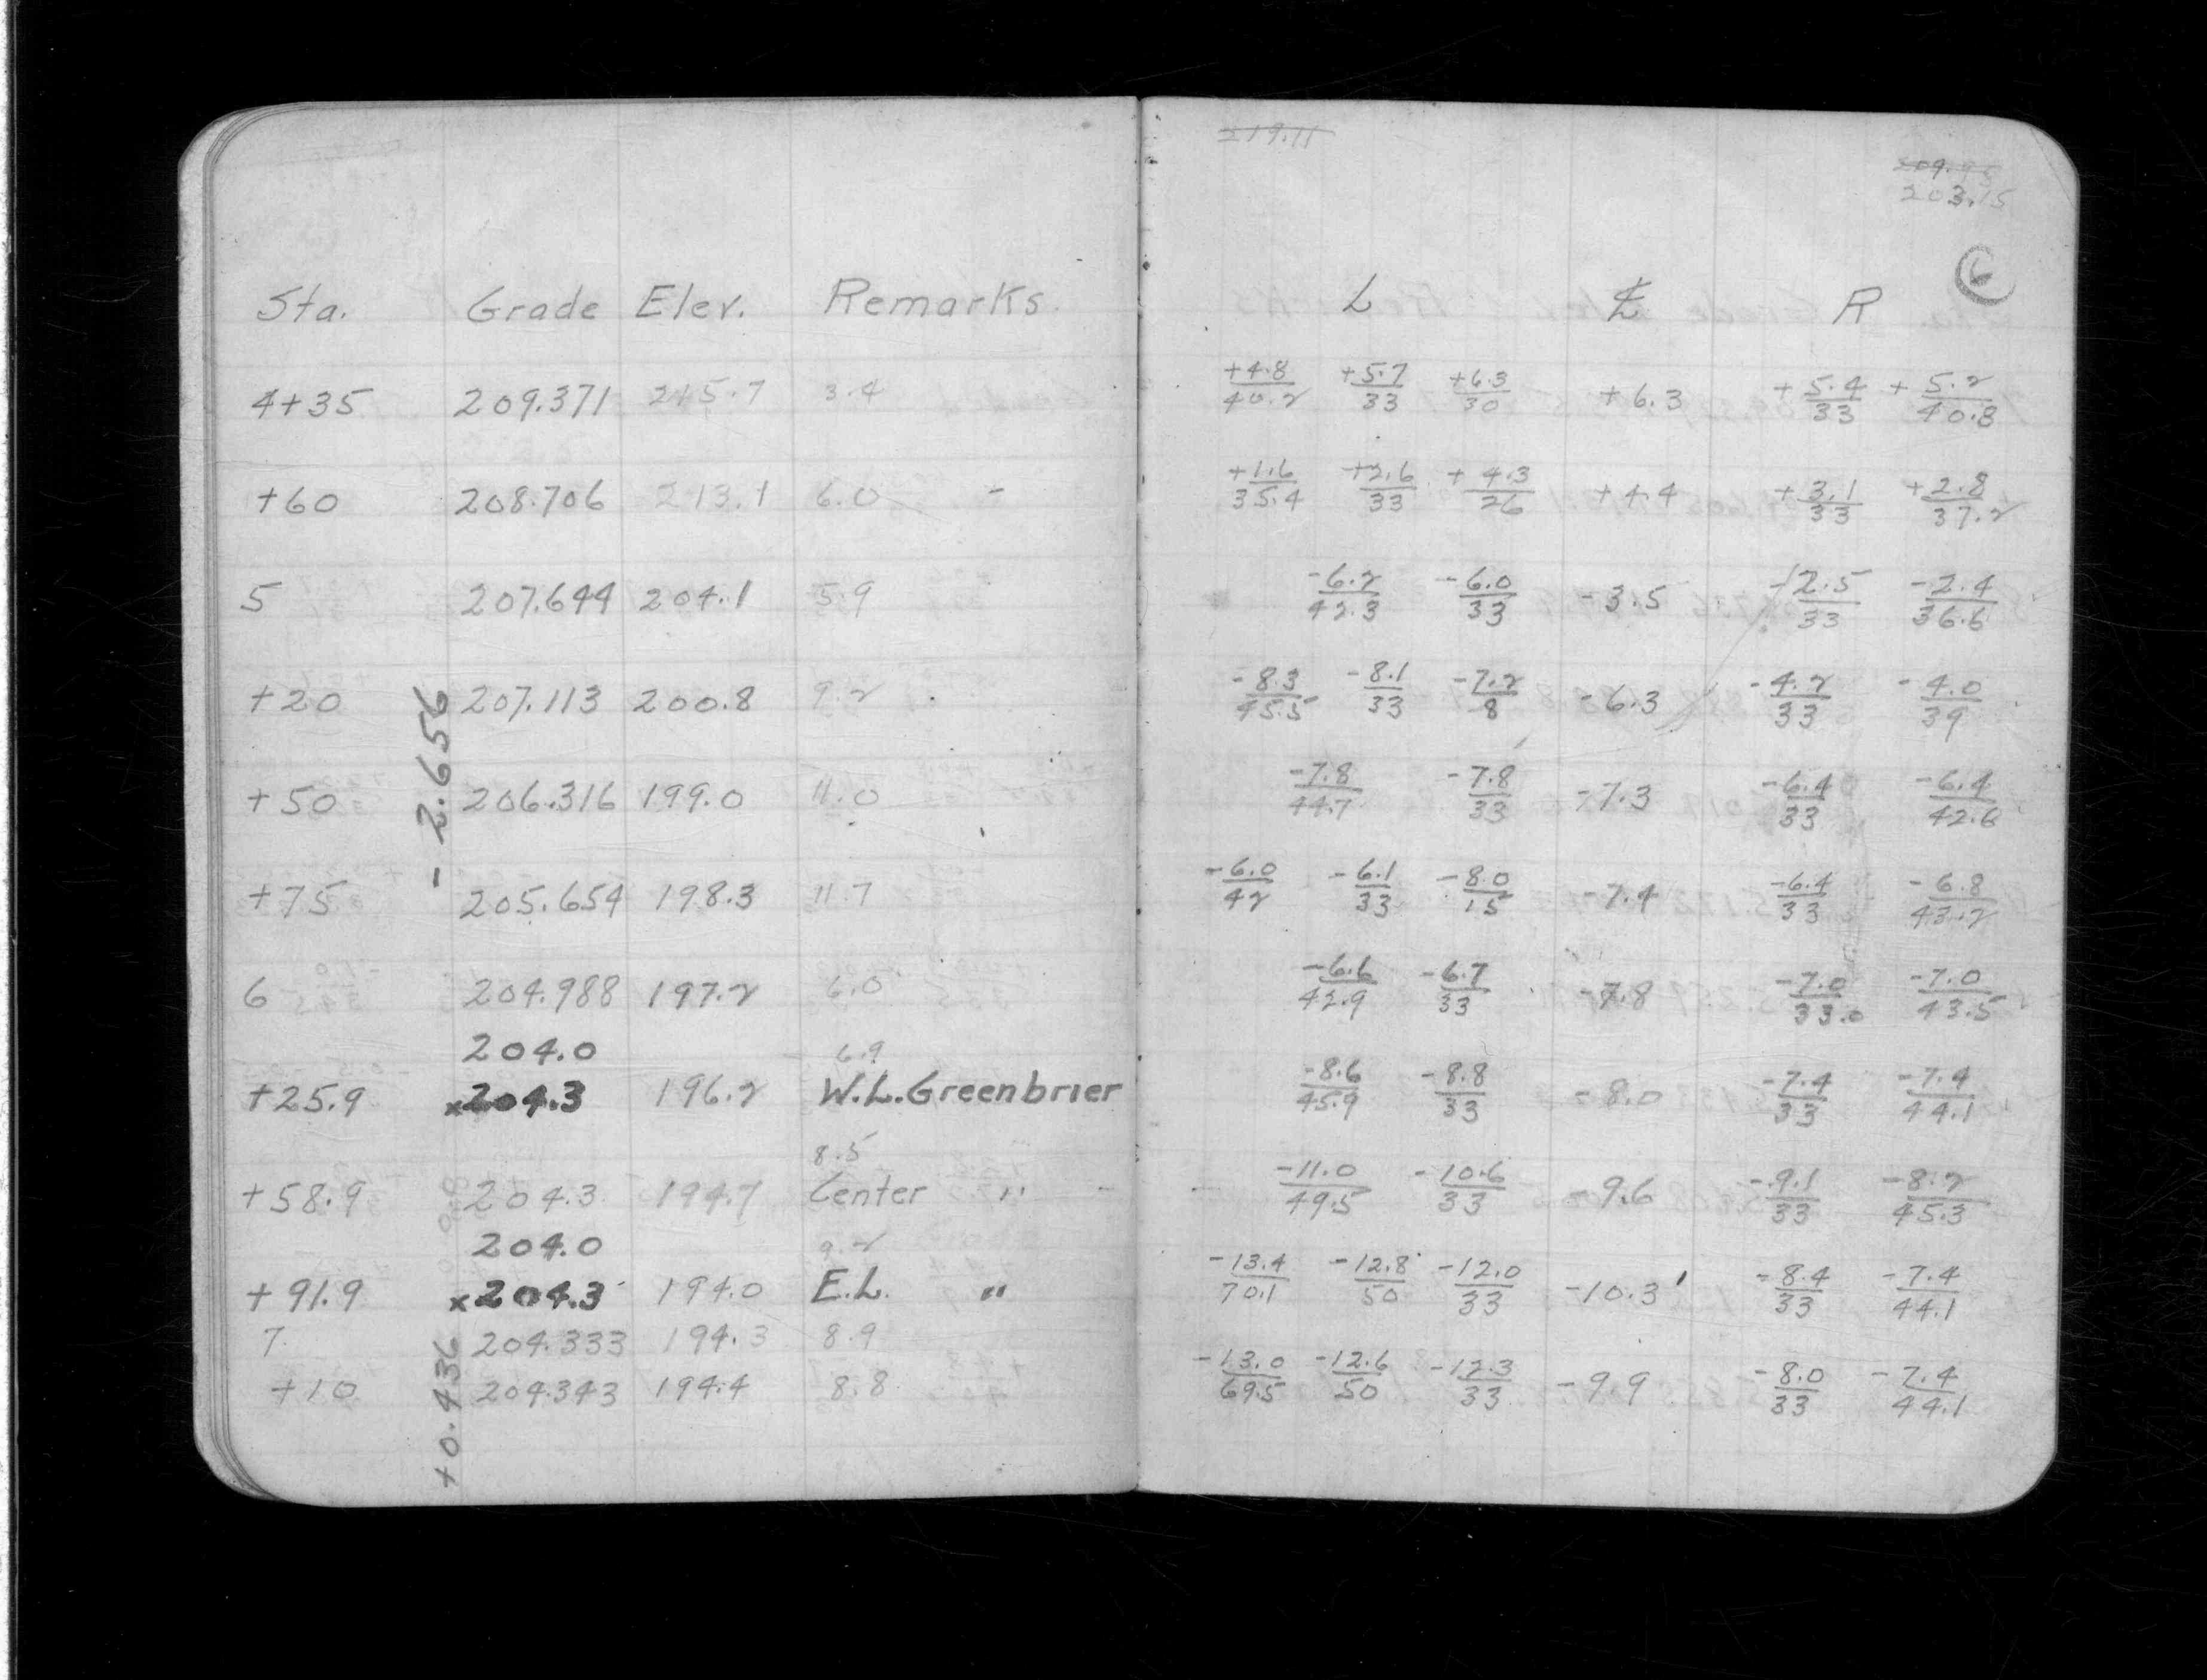 219.11
203.15
6
Sta. Grade Elev. Remarks. L ℄ R
4+35 209.371 215.7 3.4 +4.8/40.2 +5.7/33 +6.3/30 +6.3 +5.4/33 +5.2/40.8
+60 208.706 213.1 6.0 - +1.6/35.4 +2.6/33 +4.3/26 +4.4 +3.1/33 +2.8/37.2
5 207.644 204.1 5.9 -6.2/42.3 -6.0/33 -3.5 -2.5/33 -2.4/36.6
+20 207.113 200.8 9.2 -8.3/45.5 -8.1/33 -7.2/8 -6.3 -4.2/33 -4.0/39
- 2.656
+50 206.316 199.0 11.0 -7.8/44.7 -7.8/33 -7.3 -6.4/33 -6.4/42.6
+75 205.654 198.3 11.7 -6.0/42 -6.1/33 -8.0/15 -7.4 -6.4/33 -6.8/43.2
6 204.988 197.2 6.0 -6.6/42.9 -6.7/33 -7.8 -7.0/33.0 -7.0/43.5
204.0 6.9
+25.9 x204.3 196.2 W.L. Greenbrier -8.6/45.9 -8.8/33 -8.0 -7.4/33 -7.4/44.1
8.5
+58.9 204.3 194.7 Center " - -11.0/49.5 -10.6/33 -9.6 -9.1/33 -8.2/45.3
204.0 9.2
+91.9 x204.3 194.0 E.L. " -13.4/70.1 -12.8/50 -12.0/33 -10.3 -8.4/33 -7.4/44.1
7 204.333 194.3 8.9
+10 204.343 194.4 8.8 -13.0/69.5 -12.6/50 -12.3/33 -9.9 -8.0/33 -7.4/44.1
+0.436